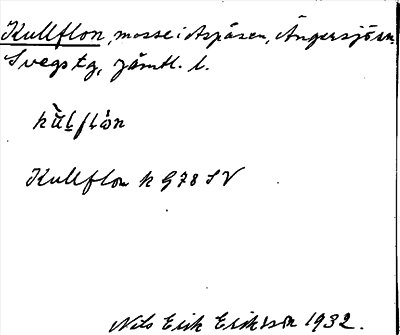 Kullflon, mosse i Aspåsen, Ängersjörn.
Svegs tg, Jämtl. l.
kùl̥flòn
Kullflon k G78 SV
Nils Erik Eriksson 1932.